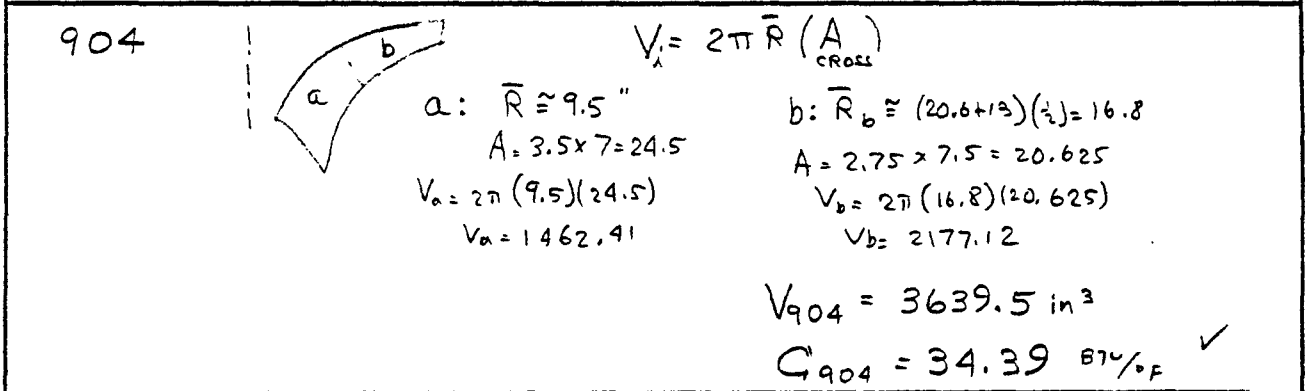 904
a
b
Vᵢ = 2π R̄ (A CROSS)
a: R̄ ≅ 9.5"
A = 3.5 x 7 = 24.5
Va = 2π (9.5)(24.5)
Va = 1462.41
b: R̄b ≅ (20.6+13)(½) = 16.8
A = 2.75 x 7.5 = 20.625
Vb = 2π (16.8)(20.625)
Vb = 2177.12
V904 = 3639.5 in³
C904 = 34.39 BTU/°F ✓